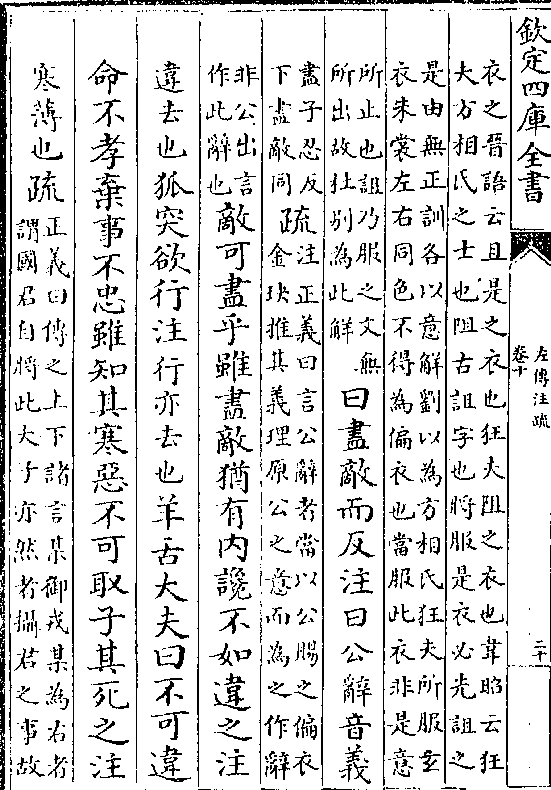 欽定四庫全書
左傳注疏
卷十
二十
衣之晉語云且是之衣也狂夫阻之衣也韋昭云狂
大方相氏之士也阻古詛字也將服是衣必先詛之
是由無正訓各以意解劉以為方相氏狂夫所服玄
衣朱裳左右同色不得為偏衣也當服此衣非是意
所止也詛乃服之文無
所出故杜别為此解
曰盡敵而反注曰公辭音義
盡子忍反
下盡敵同
疏
注正義曰言公辭者當以公賜之偏衣
金玦推其義理原公之意而為之作辭
非公出言
作此辭也
敵可盡乎雖盡敵猶有内讒不如違之注
違去也狐突欲行注行亦去也羊舌大夫曰不可違
命不孝棄事不忠雖知其寒惡不可取子其死之注
寒薄也疏
正義曰傳之上下諸言某御戎某為右者
謂國君自將此大子亦然者攝君之事故